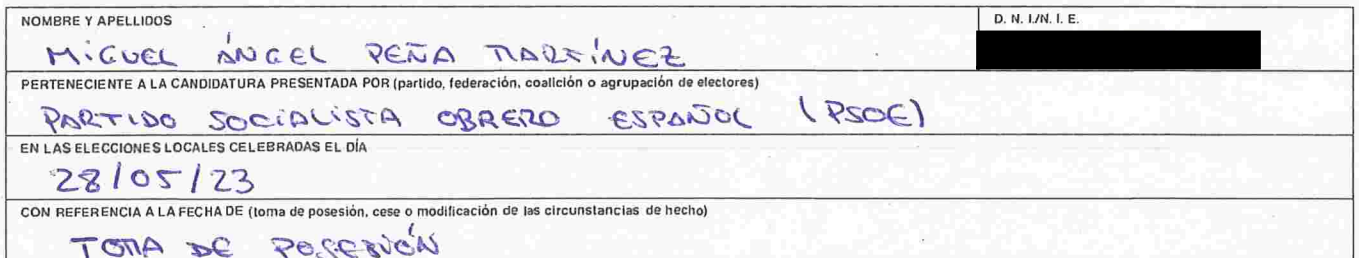 NOMBRE Y APELLIDOS D. N. I./N. I. E.
MIGUEL ÁNGEL PEÑA MARTÍNEZ
PERTENECIENTE A LA CANDIDATURA PRESENTADA POR (partido, federación, coalición o agrupación de electores)
PARTIDO SOCIALISTA OBRERO ESPAÑOL (PSOE)
EN LAS ELECCIONES LOCALES CELEBRADAS EL DÍA
28/05/23
CON REFERENCIA A LA FECHA DE (toma de posesión, cese o modificación de las circunstancias de hecho)
TOMA DE POSESIÓN